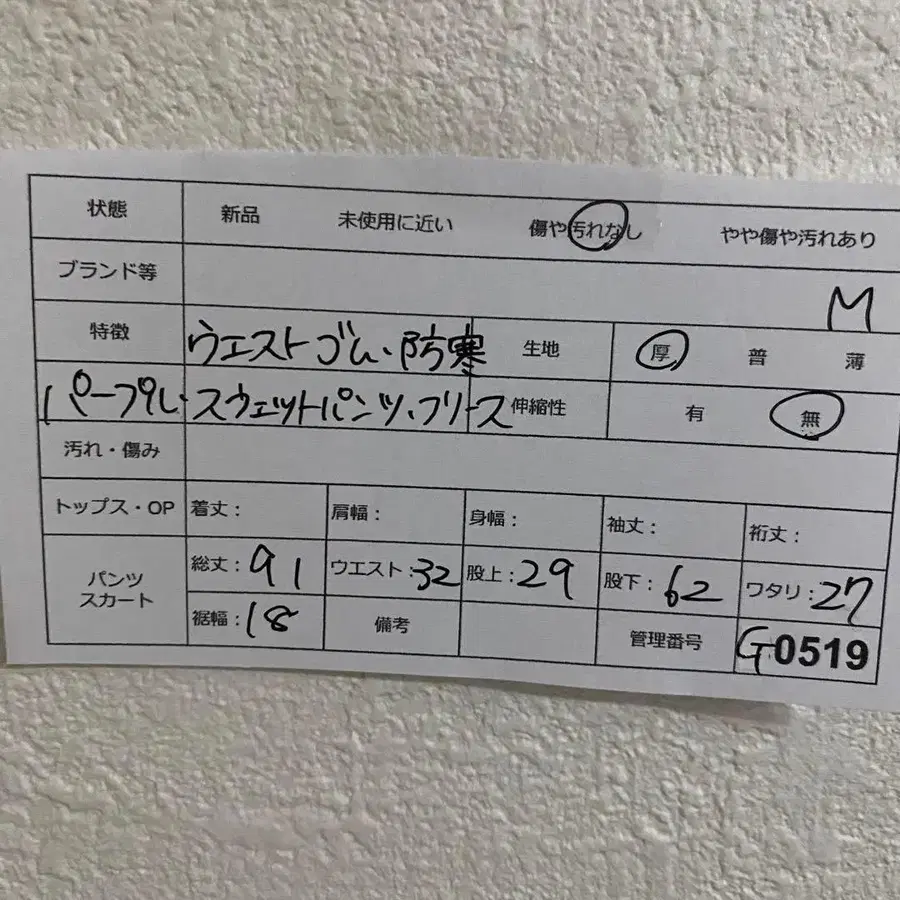 状態 新品 未使用に近い 傷や汚れなし やや傷や汚れあり
ブランド等 M
特徴 ウエストゴム、防寒 生地 厚 普 薄
パープル、スウェットパンツ、フリース 伸縮性 有 無
汚れ・傷み
トップス・OP 着丈: 肩幅: 身幅: 袖丈: 裄丈:
パンツ スカート 総丈:91 ウエスト:32 股上:29 股下:62 ワタリ:27
裾幅:18 備考 管理番号 G0519